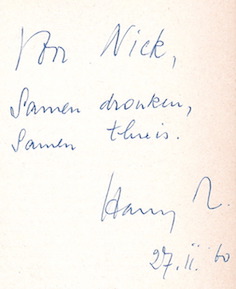 Voor Nick,
Samen dronken,
Samen thuis.
Harry R.
27.II.60